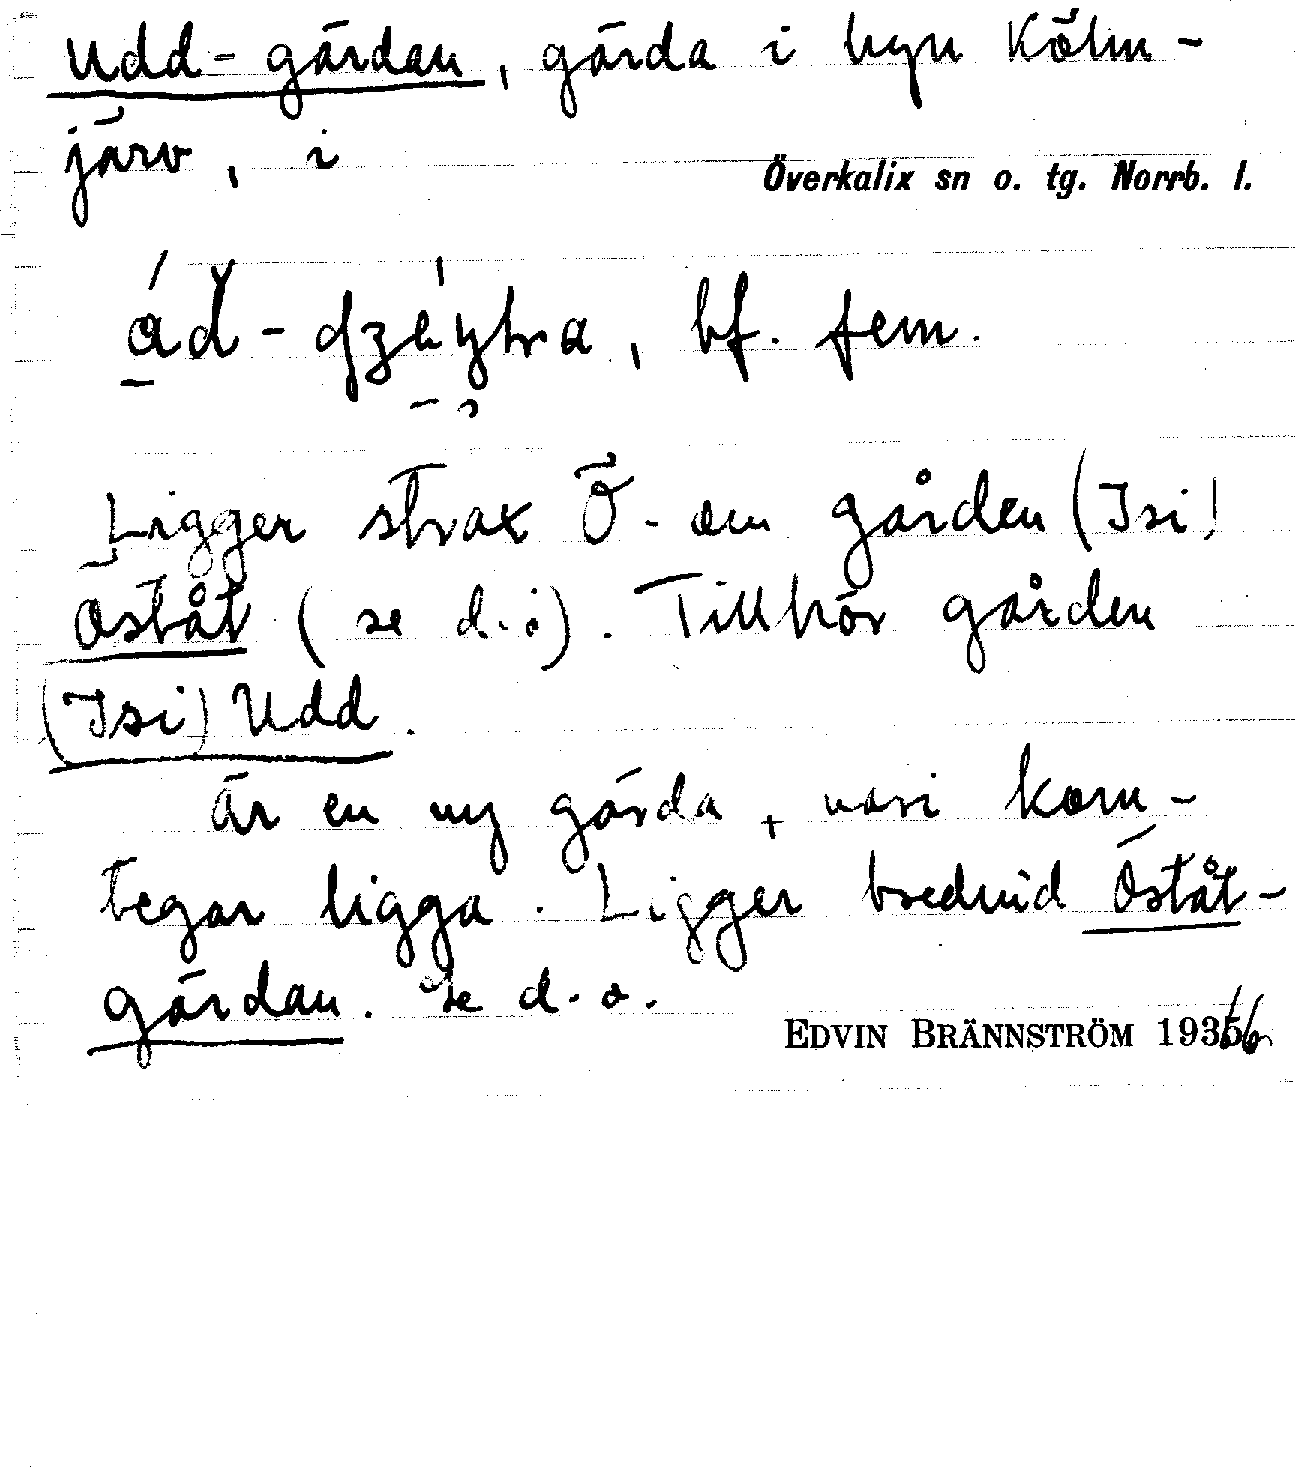 Udd-gärdan, gärda i byn Köhn-
järv, i
Överkalix sn o. tg. Norrb. l.
bf. fem.
Ligger strax Ö. om gården (Isi)
Öståt (se d.o). Tillhör gården
(Isi) Udd.
Är en ny gärda, vari korn-
tegar ligga. Ligger bredvid Öståt-
gärdan. Se d.o.
EDVIN BRÄNNSTRÖM 193